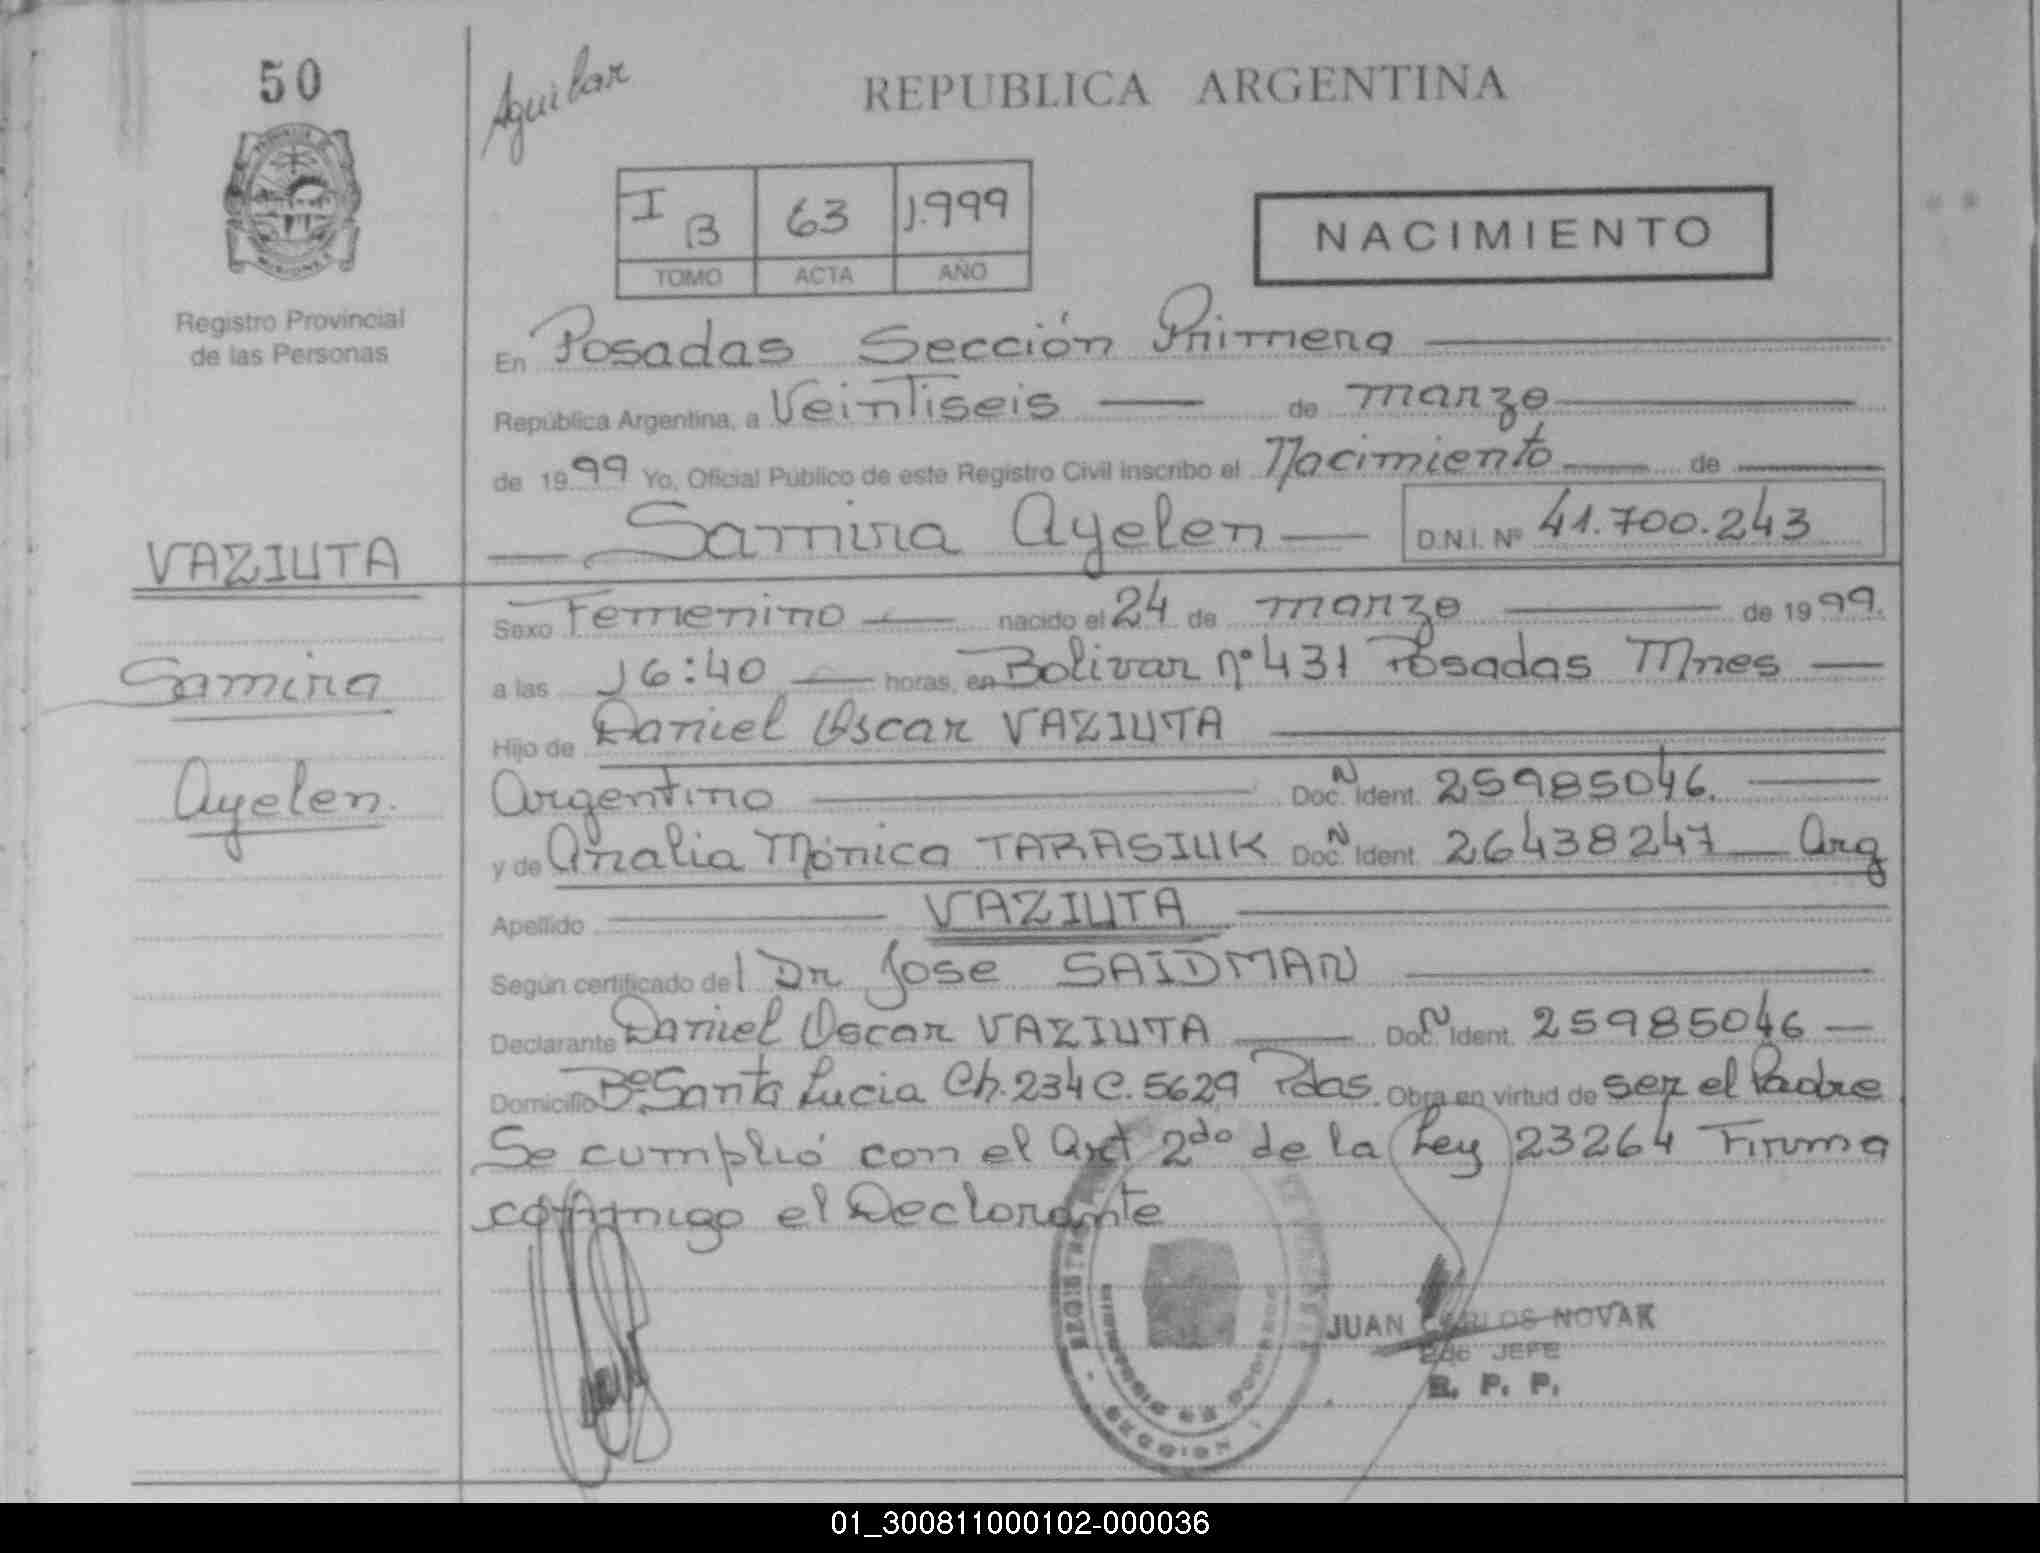 50
Aguilar
REPUBLICA ARGENTINA
I B 63 1.999
TOMO ACTA AÑO
NACIMIENTO
Registro Provincial
de las Personas
En Posadas Sección Primera
República Argentina, a Veintiseis de marzo
de 1999 Yo, Oficial Público de este Registro Civil inscribo el Nacimiento de
Samira Ayelen D.N.I. Nº 41.700.243
VAZIUTA
Samira
Ayelen.
Sexo Femenino nacido el 24 de marzo de 1999.
a las 16:40 horas, en Bolivar nº 431 Posadas Mnes
Hijo de Daniel Oscar VAZIUTA
Argentino Doc. N Ident. 25985046.
y de Analia Mónica TARASIUK Doc. N Ident. 26438247 Arg
Apellido VAZIUTA
Según certificado del Dr Jose SAIDMAN
Declarante Daniel Oscar VAZIUTA Doc. N Ident. 25985046
Domicilio Bº Santa Lucia Ch. 234 C. 5629 Pdas. Obra en virtud de ser el Padre
Se cumplió con el Art 2do de la Ley 23264 Firma
conmigo el Declarante
JUAN CARLOS NOVAK
2do JEFE
R. P. P.
01_300811000102-000036